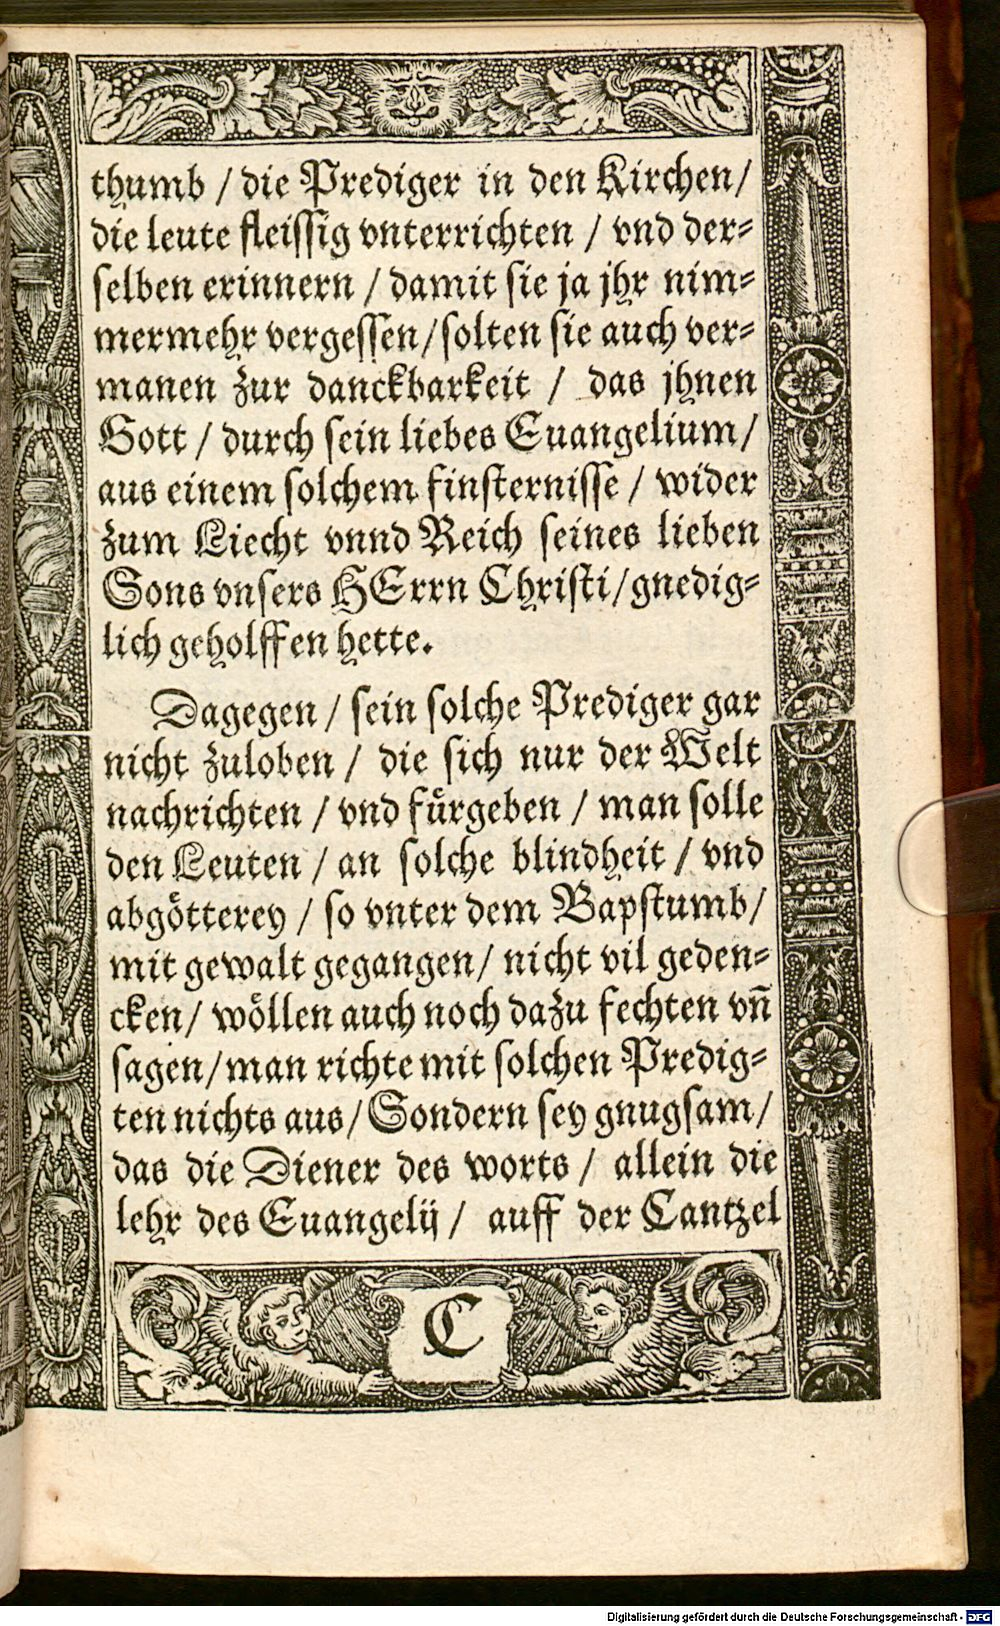 thumb / die Prediger in den Kirchen/
die leute fleissig vnterrichten / vnd der⸗
selben erinnern / damit sie ja jhr nim⸗
mermehr vergessen/solten sie auch ver⸗
manen zur danckbarkeit / das jhnen
Gott / durch sein liebes Euangelium/
aus einem solchem finsternisse / wider
zum Liecht vnnd Reich seines lieben
Sons vnsers HErrn Christi/gnedig⸗
lich geholffen hette.
Dagegen / sein solche Prediger gar
nicht zuloben / die sich nur der Welt
nachrichten / vnd fuͤrgeben / man solle
den Leuten / an solche blindheit / vnd
abgoͤtterey / so vnter dem Bapstumb/
mit gewalt gegangen/ nicht vil geden⸗
cken/ woͤllen auch noch dazu fechten vñ
sagen/man richte mit solchen Predig⸗
ten nichts aus/Sondern sey gnugsam/
das die Diener des worts / allein die
lehr des Euangelij / auff der Cantzel
C
Digitalisierung gefördert durch die Deutsche Forschungsgemeinschaft - DFG